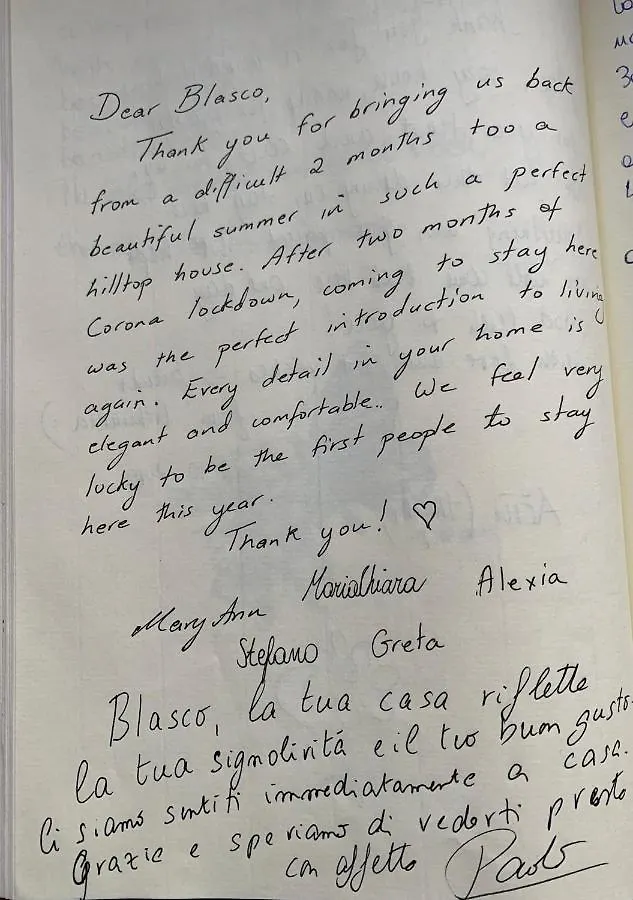 Dear Blasco,
Thank you for bringing us back
from a difficult 2 months too a
beautiful summer in such a perfect
hilltop house. After two months of
Corona lockdown, coming to stay here
was the perfect introduction to living
again. Every detail in your home is
elegant and comfortable.. We feel very
lucky to be the first people to stay
here this year.
Thank you! ♡
MariaChiara Alexia
Mary Ann
Stefano Greta
Blasco, la tua casa riflette
la tua signolività e il tuo buon gusto.
Ci siamo sentiti immediatamente a casa.
Grazie e speriamo di vederti presto
con affetto Paolo